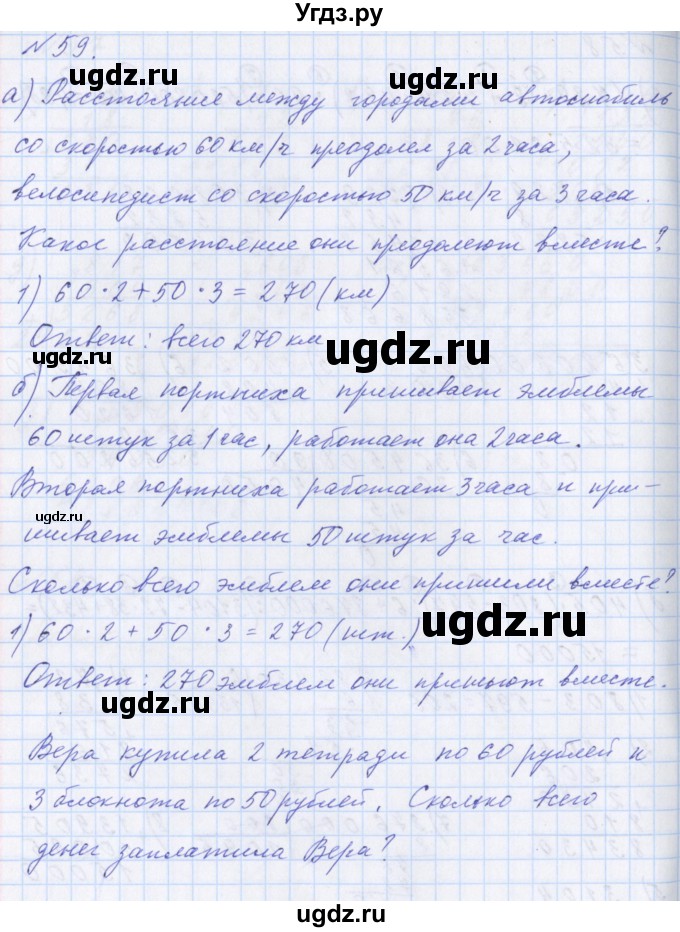 Угдз.ру
№59.
ugdz.ru
ugdz.ru
а) Расстояние между городами автомобиль
со скоростью 60 км/ч преодолел за 2 часа,
ugdz.ru
велосипедист со скоростью 50 км/ч за 3 часа.
Какое расстояние они преодолеют вместе?
1) 60 · 2 + 50 · 3 = 270 (км)
Ответ: всего 270 км
ugdz.ru
ugdz.ru
б) Первая портниха пришивает эмблемы
60 штук за 1 час, работает она 2 часа.
Вторая портниха работает 3 часа и при-
ugdz.ru
шивает эмблемы 50 штук за час.
Сколько всего эмблем они пришили вместе?
1) 60 · 2 + 50 · 3 = 270 (шт.)
ugdz.ru
Ответ: 270 эмблем они пришьют вместе.
Вера купила 2 тетради по 60 рублей и
3 блокнота по 50 рублей. Сколько всего
денег заплатила Вера?
ugdz.ru